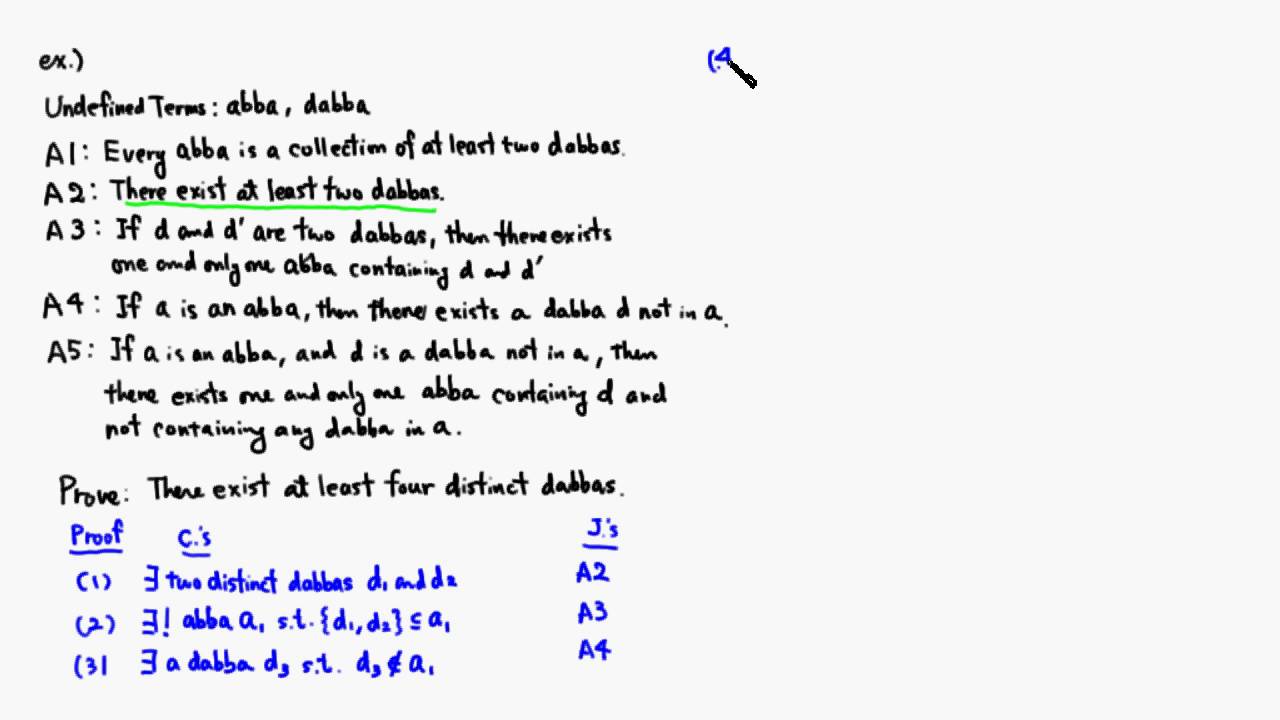 ex.)
Undefined Terms: abba, dabba
A1: Every abba is a collection of at least two dabbas.
A2: There exist at least two dabbas.
A3: If d and d' are two dabbas, then there exists
one and only one abba containing d and d'
A4: If a is an abba, then there exists a dabba d not in a.
A5: If a is an abba, and d is a dabba not in a, then
there exists one and only one abba containing d and
not containing any dabba in a.
Prove: There exist at least four distinct dabbas.
Proof C.'s J.'s
(1) ∃ two distinct dabbas d₁ and d₂ A2
(2) ∃! abba a₁ s.t. {d₁, d₂} ⊆ a₁ A3
(3) ∃ a dabba d₃ s.t. d₃ ∉ a₁ A4
(4